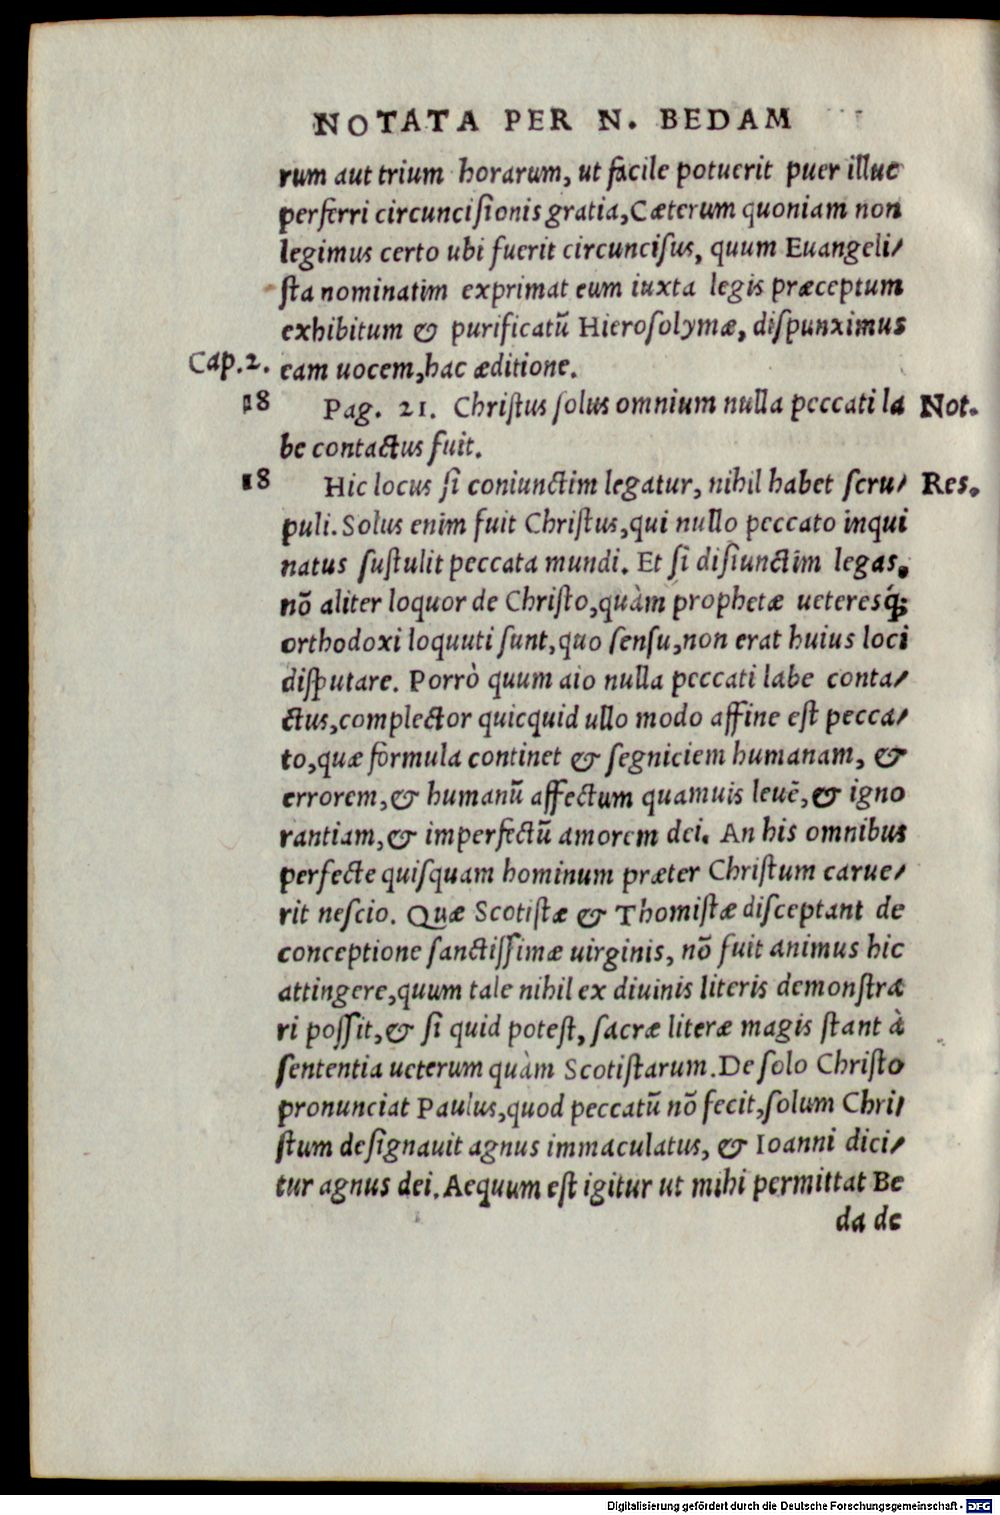 NOTATA PER N. BEDAM
rum aut trium horarum, ut facile potuerit puer illuc
perferri circuncisionis gratia, Cæterum quoniam non
legimus certo ubi fuerit circuncisus, quum Euangeli/
sta nominatim exprimat eum iuxta legis præceptum
exhibitum & purificatū Hierosolymæ, dispunximus
Cap.2. eam uocem, hac æditione.
18 Pag. 21. Christus solus omnium nulla peccati la Not.
be contactus fuit.
18 Hic locus si coniunctim legatur, nihil habet scru/ Res.
puli. Solus enim fuit Christus, qui nullo peccato inqui
natus sustulit peccata mundi. Et si disiunctim legas,
nō aliter loquor de Christo, quàm prophetæ ueteresq́;
orthodoxi loquuti sunt, quo sensu, non erat huius loci
disputare. Porrò quum aio nulla peccati labe conta/
ctus, complector quicquid ullo modo affine est pecca/
to, quæ formula continet & segniciem humanam, &
errorem, & humanū affectum quamuis leuē, & igno
rantiam, & imperfectū amorem dei. An his omnibus
perfecte quisquam hominum præter Christum carue/
rit nescio. Quæ Scotistæ & Thomistæ disceptant de
conceptione sanctissimæ uirginis, nō fuit animus hic
attingere, quum tale nihil ex diuinis literis demonstra
ri possit, & si quid potest, sacræ literæ magis stant à
sententia ueterum quàm Scotistarum. De solo Christo
pronunciat Paulus, quod peccatū nō fecit, solum Chri/
stum designauit agnus immaculatus, & Ioanni dici/
tur agnus dei. Aequum est igitur ut mihi permittat Be
da de
Digitalisierung gefördert durch die Deutsche Forschungsgemeinschaft - DFG